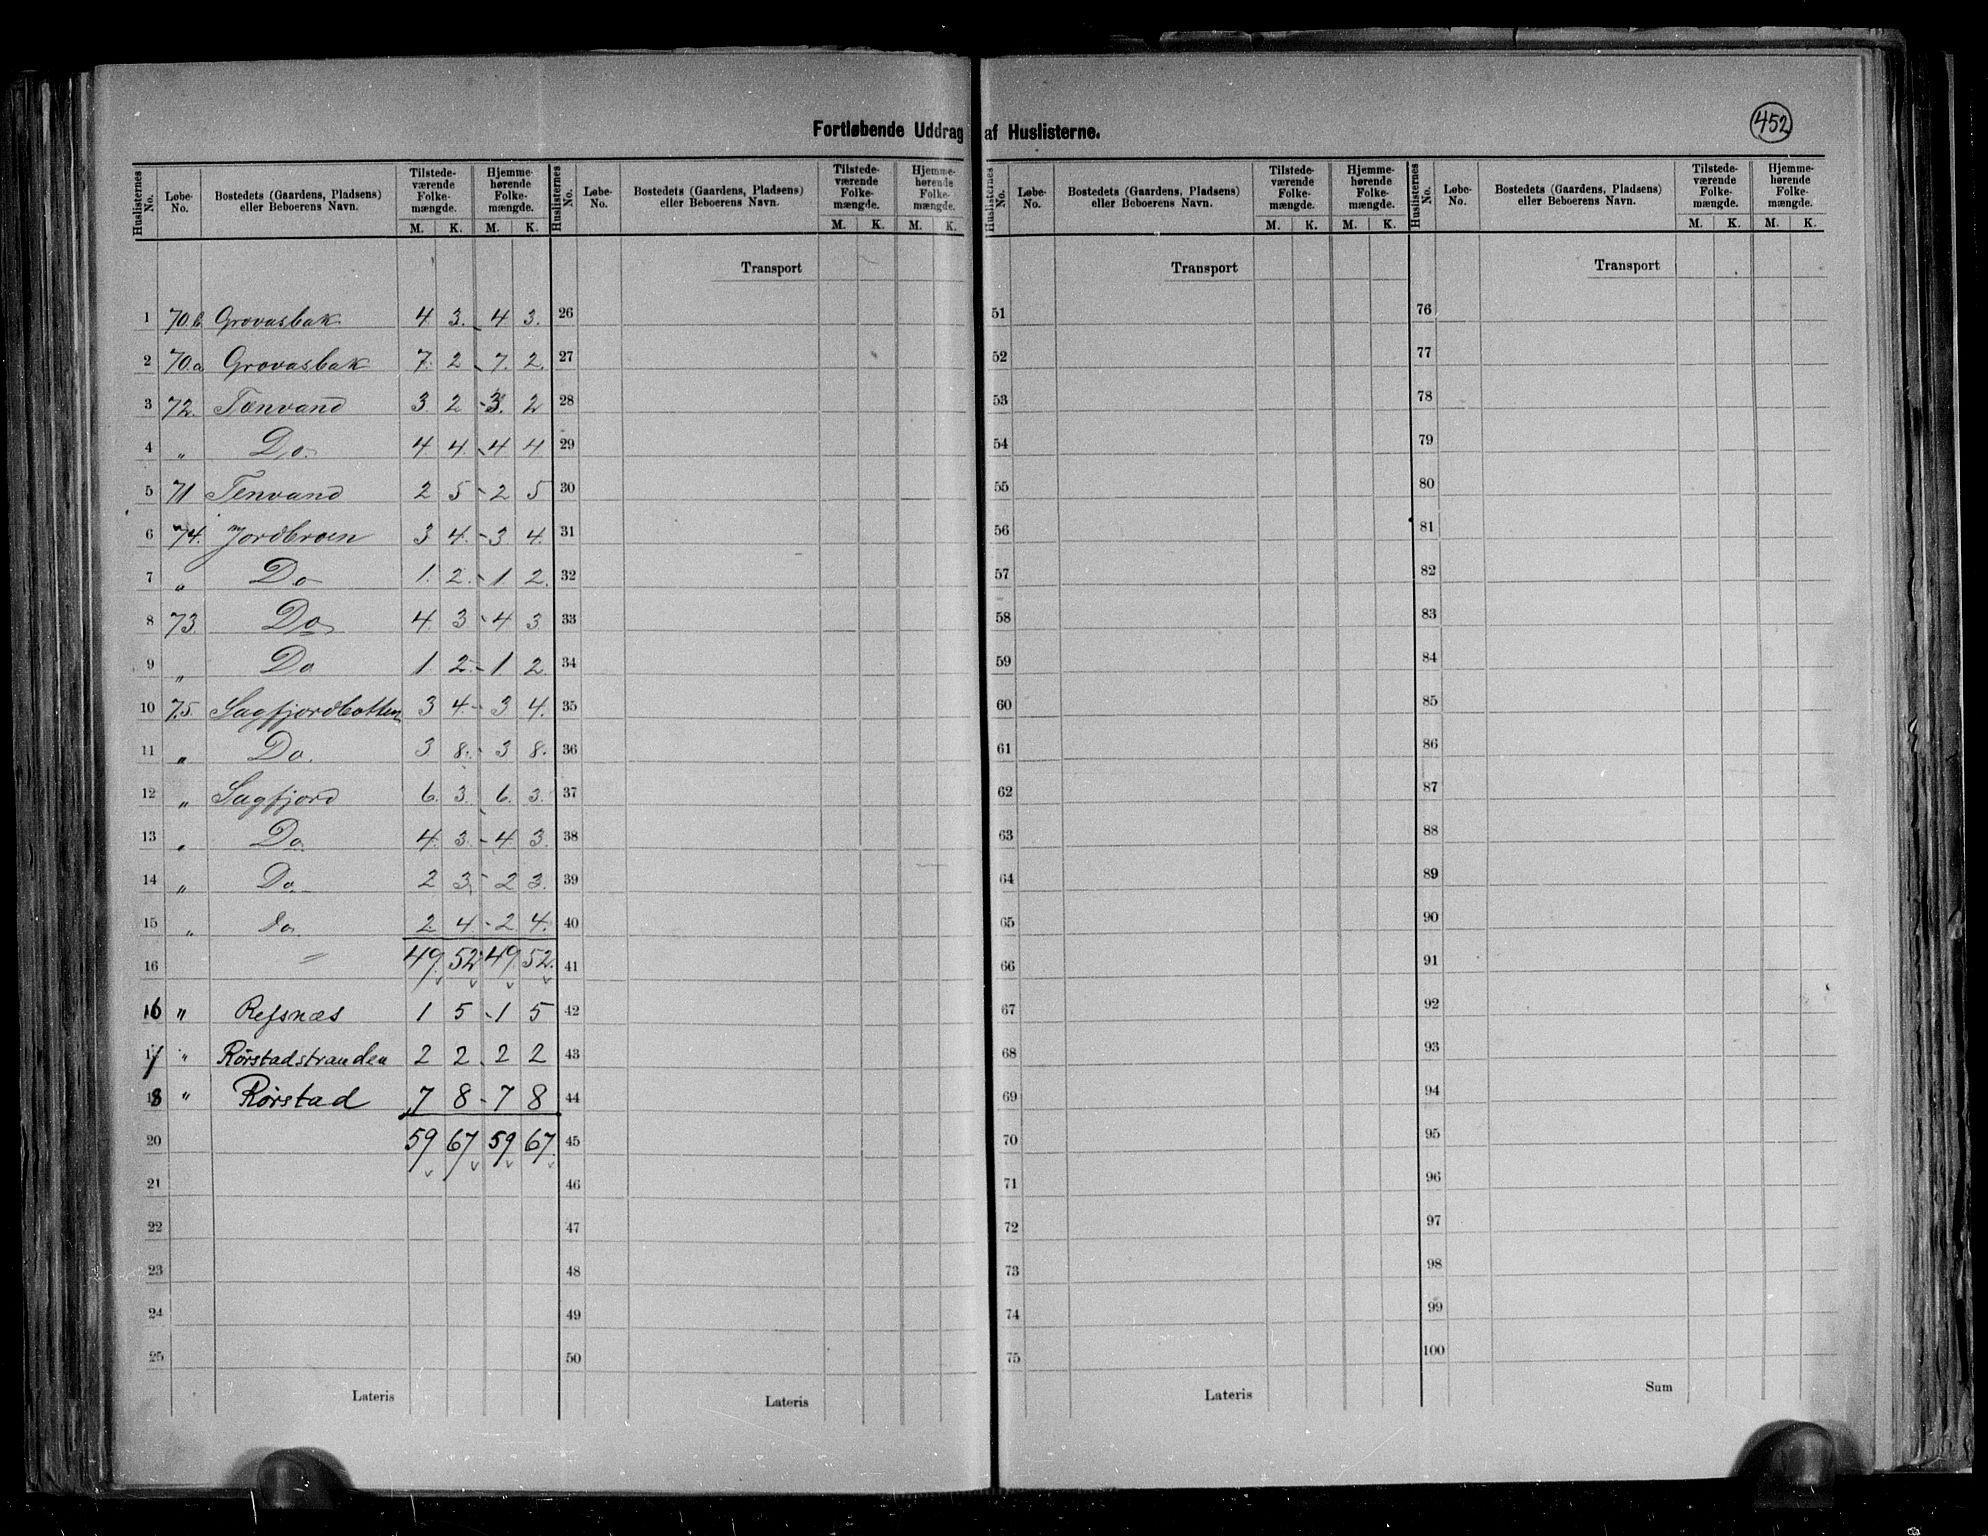 452
Fortløbende Uddrag af Huslisterne.
Huslisternes No. | Løbe-No. | Bostedets (Gaardens, Pladsens) eller Beboerens Navn. | Tilstedeværende Folkemængde. M. K. | Hjemmehørende Folkemængde. M. K.
Huslisternes No. | Løbe-No. | Bostedets (Gaardens, Pladsens) eller Beboerens Navn. | Tilstedeværende Folkemængde. M. K. | Hjemmehørende Folkemængde. M. K.
Huslisternes No. | Løbe-No. | Bostedets (Gaardens, Pladsens) eller Beboerens Navn. | Tilstedeværende Folkemængde. M. K. | Hjemmehørende Folkemængde. M. K.
Huslisternes No. | Løbe-No. | Bostedets (Gaardens, Pladsens) eller Beboerens Navn. | Tilstedeværende Folkemængde. M. K. | Hjemmehørende Folkemængde. M. K.
Transport Transport Transport
1 70.b Grovasbak 4 3. 4 3. 26 51 76
2 70.a Grovasbak 7. 2 7. 2. 27 52 77
3 72. Tænvand 3. 2 - 3. 2 28 53 78
4 „ Do. 4 4. 4 4 29 54 79
5 71 Tenvand 2 5 - 2 5 30 55 80
6 74. Jordbroen 3 4. - 3 4. 31 56 81
7 „ Do 1. 2. - 1. 2. 32 57 82
8 73. Do 4. 3 - 4 3 33 58 83
9 „ Do 1. 2. - 1 2. 34 59 84
10 75. Sagfjordbotten 3 4. - 3 4. 35 60 85
11 „ Do. 3 8. - 3 8. 36 61 86
12 „ Sagfjord 6. 3. 6. 3. 37 62 87
13 „ Do. 4. 3. - 4. 3. 38 63 88
14 „ Do. 2 3. - 2 3. 39 64 89
15 „ do. 2. 4. - 2. 4. 40 65 90
16 49. 52 49. 52. 41 66 91
16 " Refsnæs 1 5 - 1 5 42 67 92
17 " Rørstadstranden 2 2 - 2 2 43 68 93
18 " Rørstad 7 8 - 7 8 44 69 94
20 59 67 59 67. 45 70 95
21 46 71 96
22 47 72 97
23 48 73 98
24 49 74 99
25 50 75 100
Lateris Lateris Lateris Sum